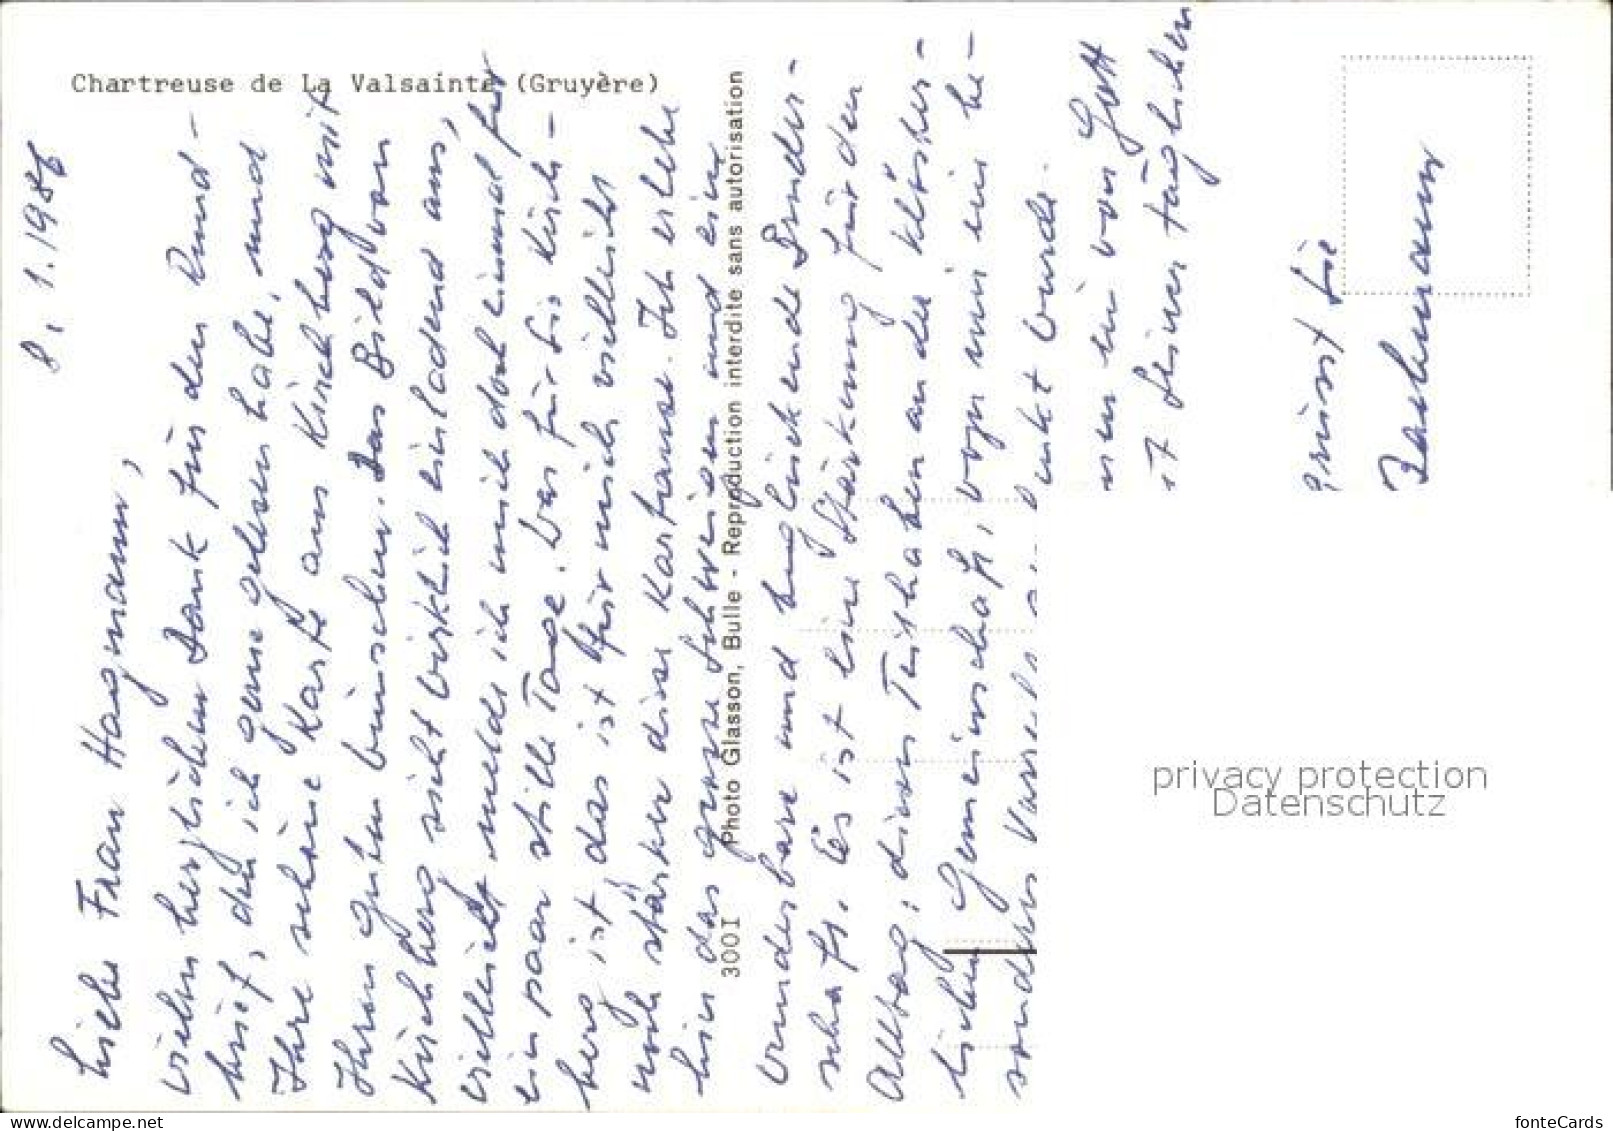 Chartreuse de La Valsainte (Gruyère)
8. 1. 1986
Liebe Frau Hagmann,
vielen herzlichen Dank für den Rund-
brief, den ich gerne gelesen habe, und
Ihre schöne Karte aus Kirchberg mit
Ihren guten Wünschen. Das Bild von
Kirchberg sieht wirklich einladend aus,
vielleicht melde ich mich doch einmal für
ein paar stille Tage. Was für Sie Kirch-
berg ist, das ist für mich vielleicht
noch stärker diese Kartause. Ich erlebe
hier das grosse Schweigen und eine
wunderbare und beglückende Bruder-
schaft. Es ist eine Stärkung für den
Alltag, dieses Teilhaben an der klöster-
lichen Gemeinschaft, wozu mir ein be-
sonderes
nkt wurde.
Gott
täglichen
grüsst Sie
3001 Photo Glasson, Bulle - Reproduction interdite sans autorisation
privacy protection
Datenschutz
www.delcampe.net
fonteCards